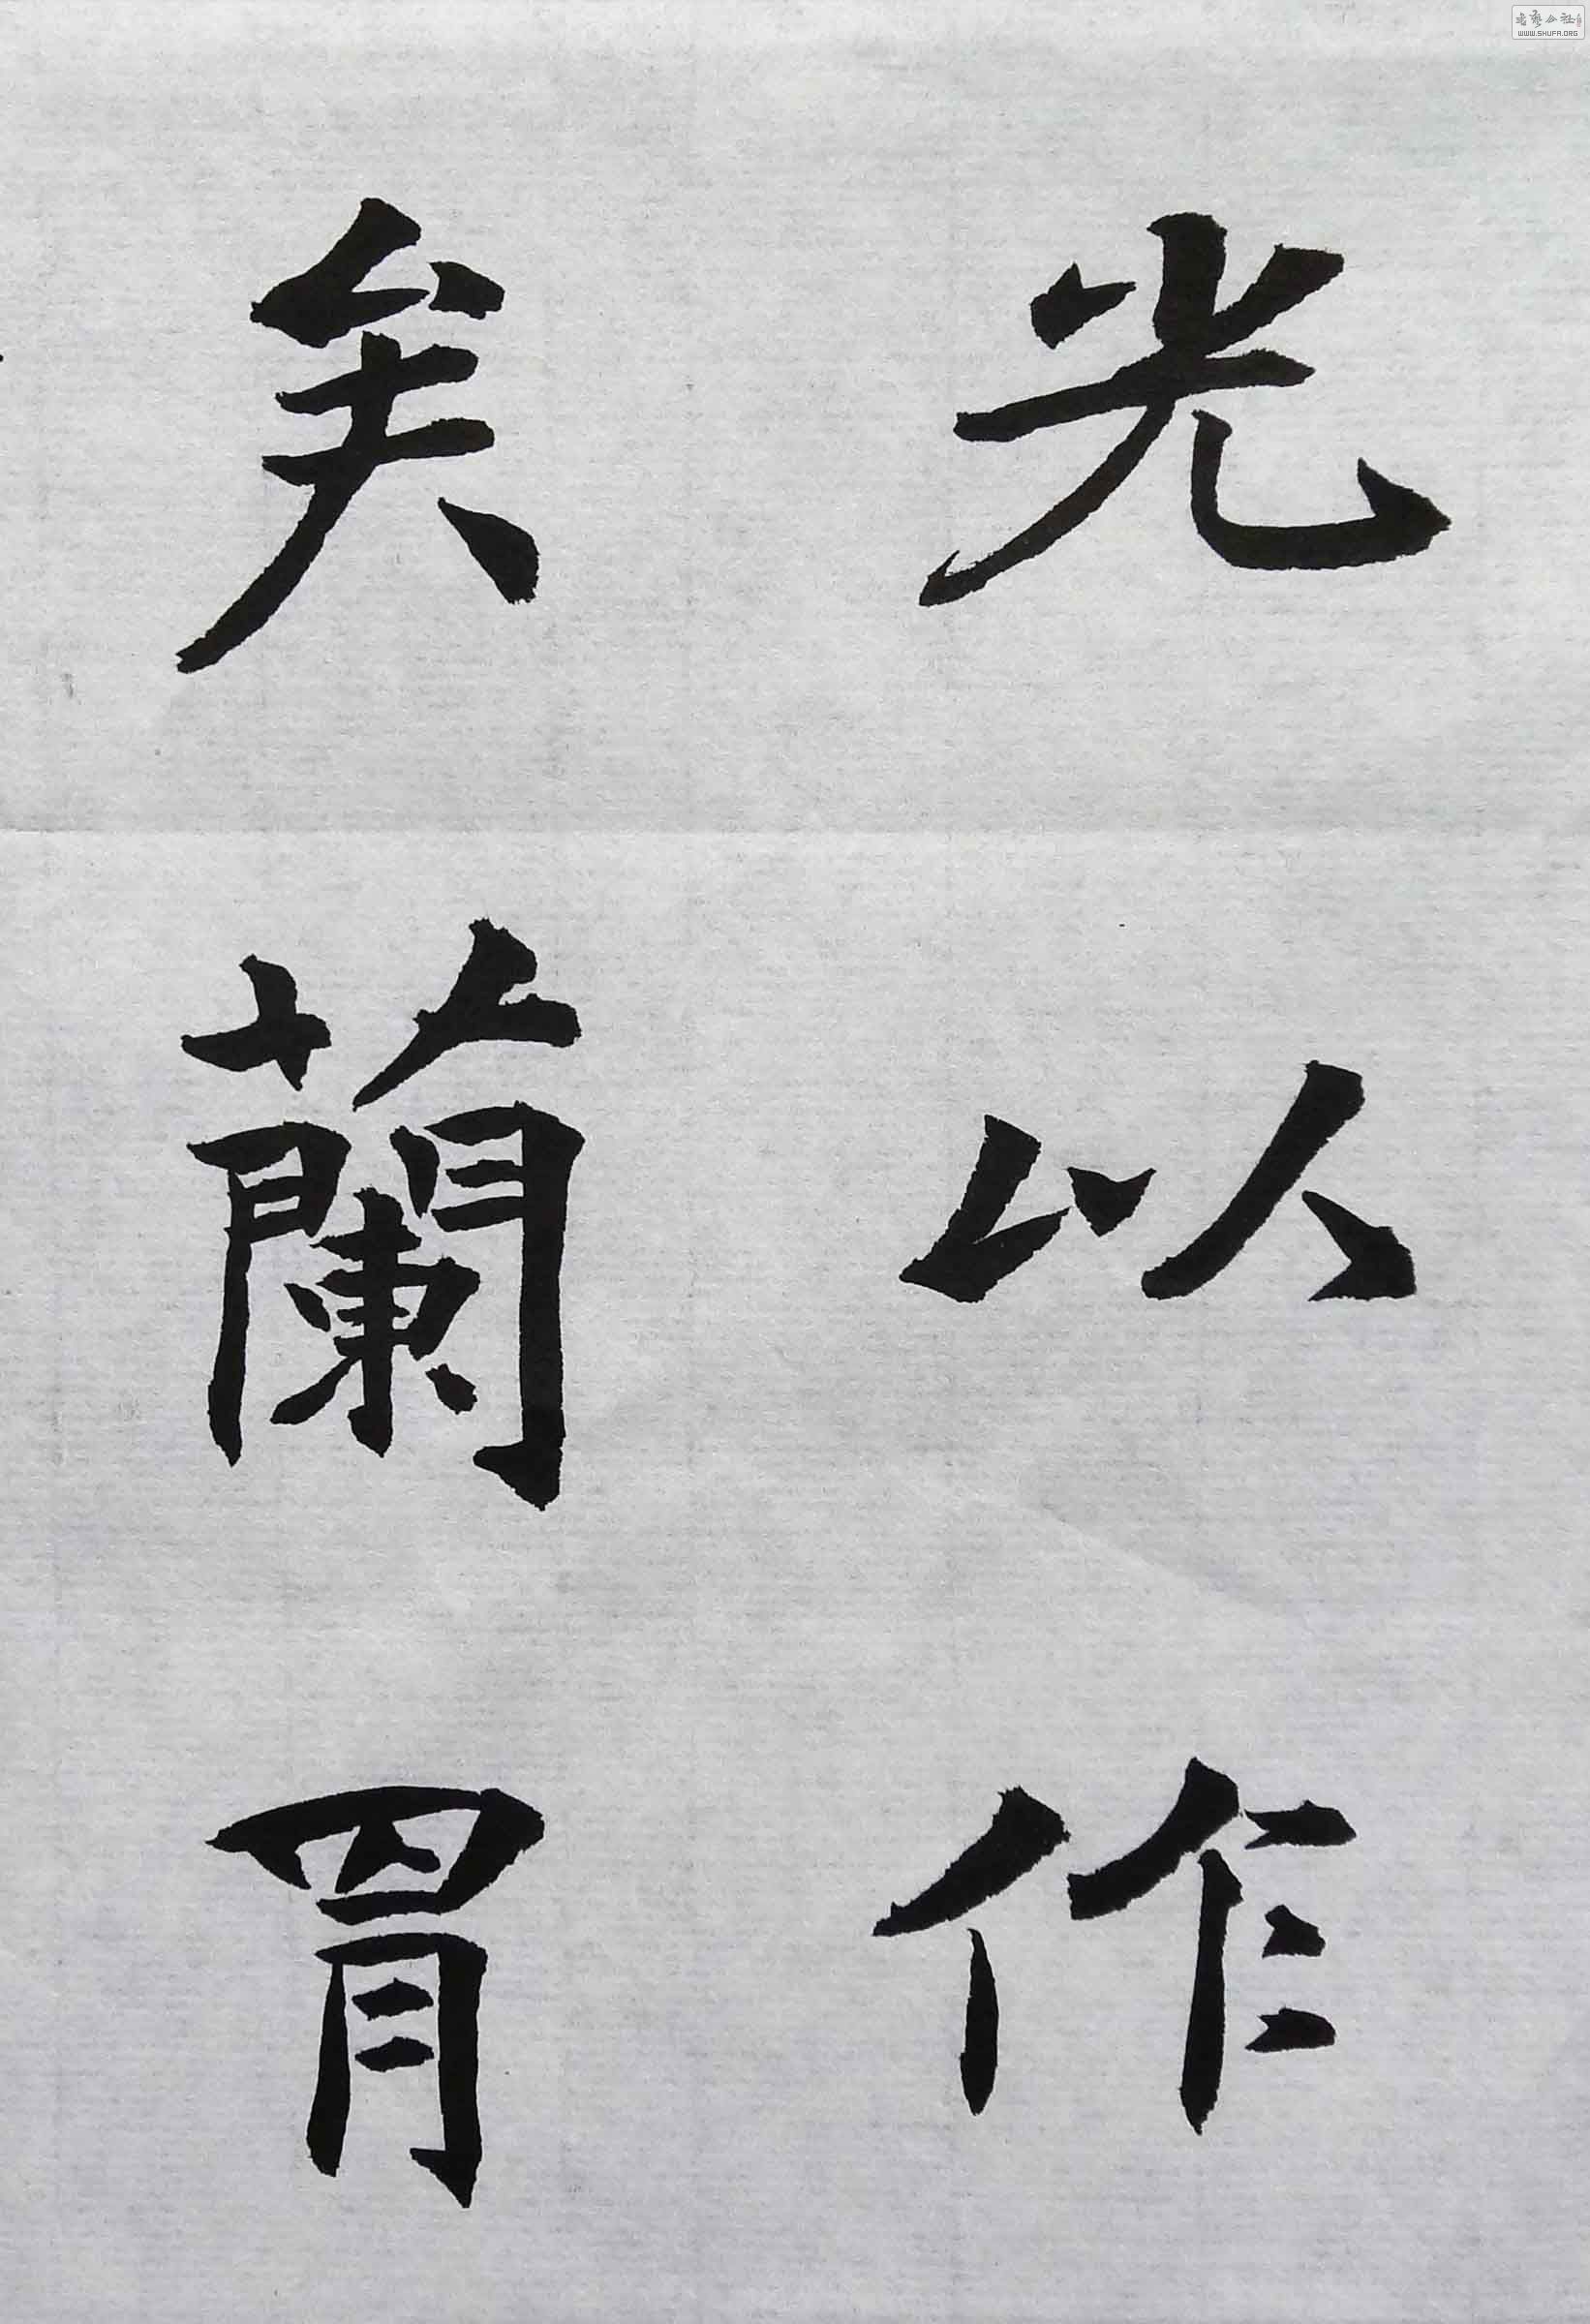 光以作
矣蘭胃
书艺公社
WWW.SHUFA.ORG